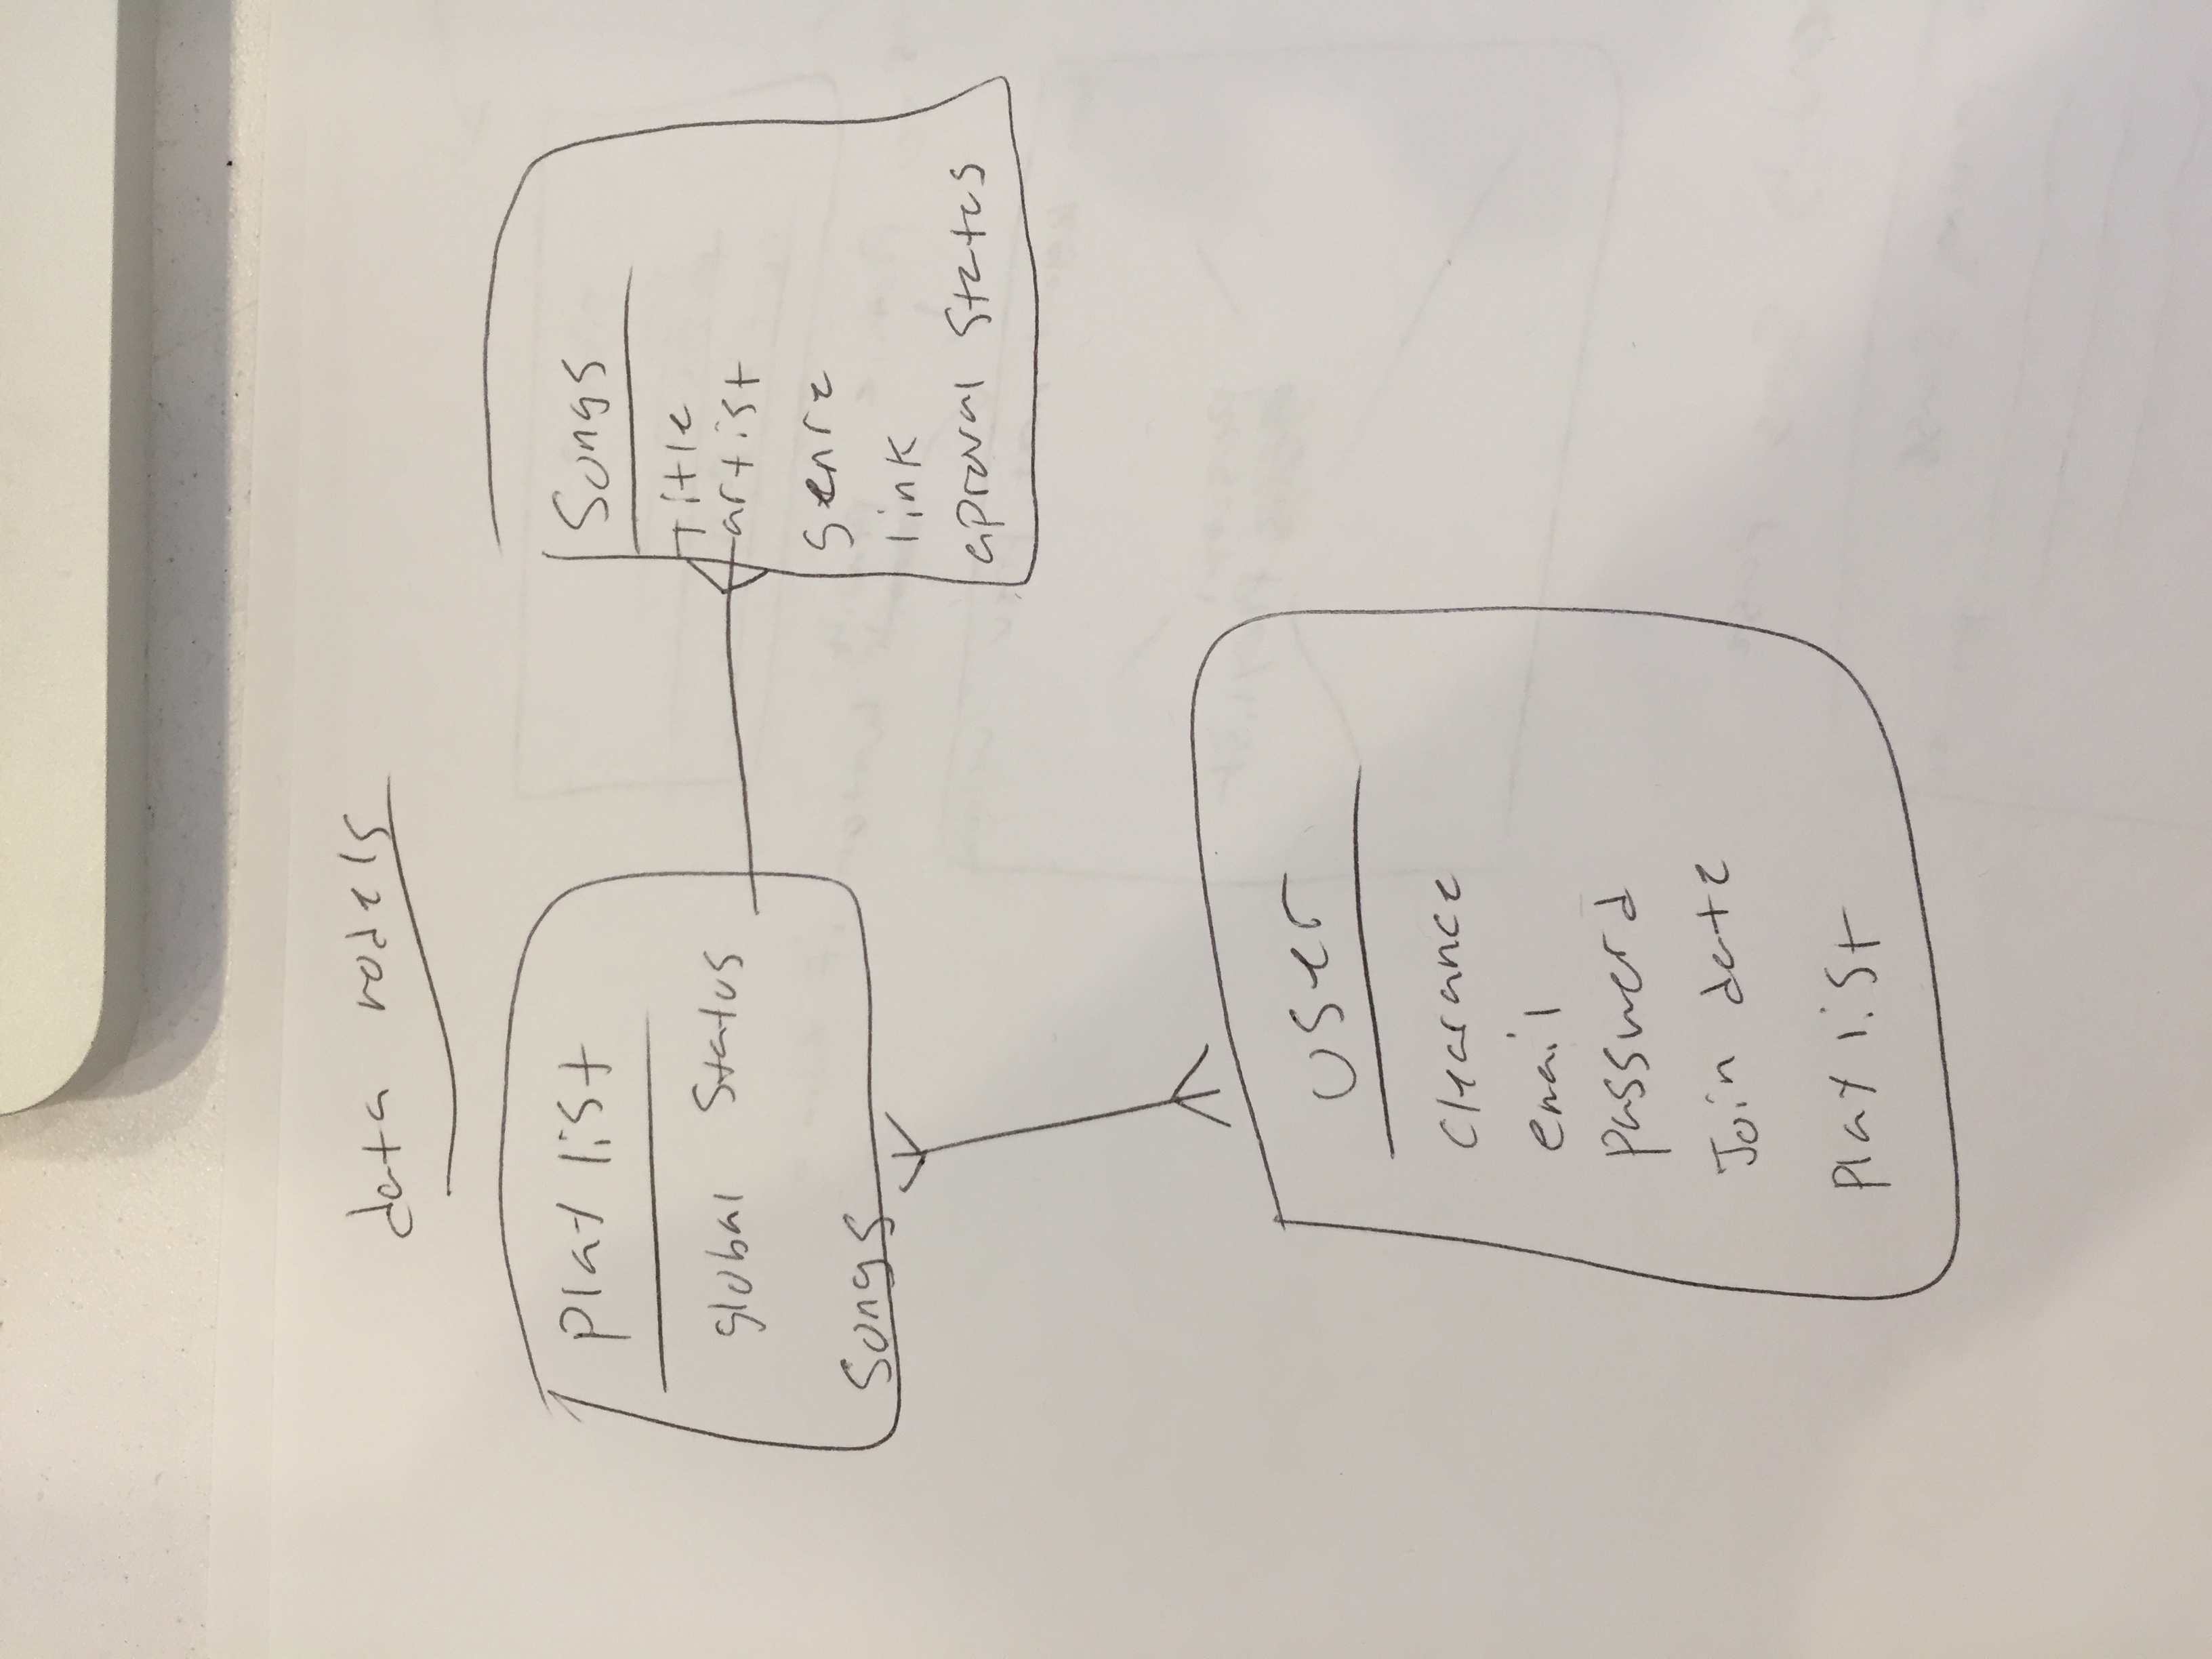 data models
Playlist
global status
Songs
Songs
Title
artist
genre
link
aproval status
user
Clearance
email
password
Join date
Playlist